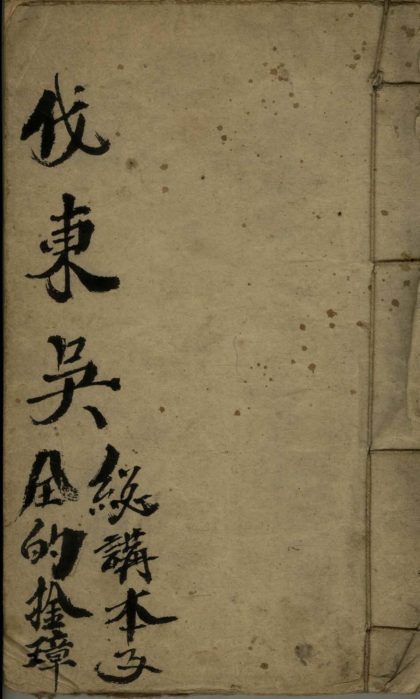 伐東吳
總講本子
全的